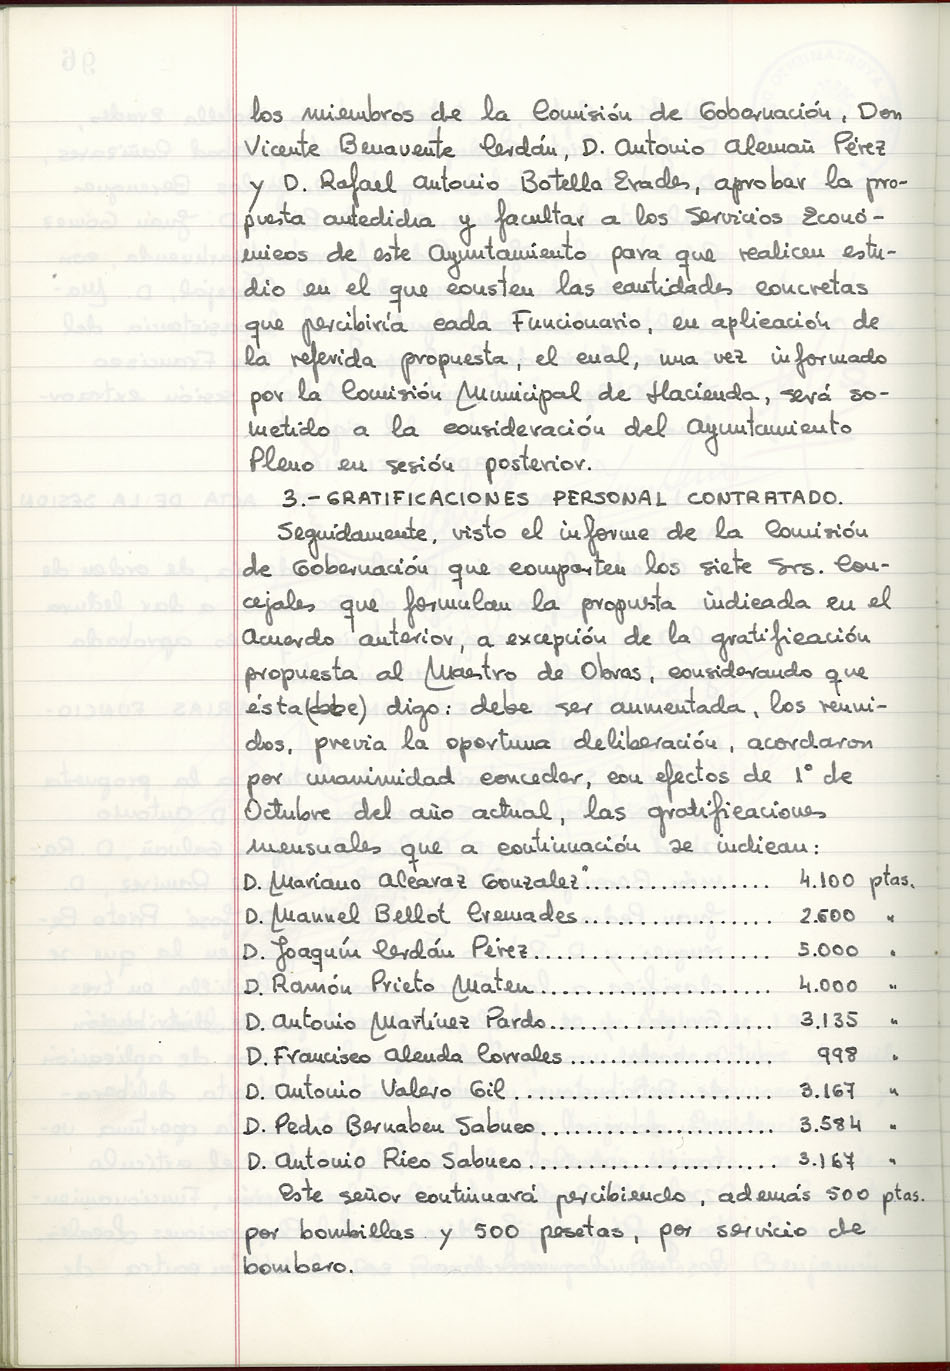 los miembros de la Comisión de Gobernación, Don
Vicente Benavente Cerdán, D. Antonio Alemañ Pérez
y D. Rafael Antonio Botella Erades, aprobar la pro-
puesta antedicha y facultar a los Servicios Econó-
micos de este Ayuntamiento para que realicen estu-
dio en el que consten las cantidades concretas
que percibiría cada Funcionario, en aplicación de
la referida propuesta, el cual, una vez informado
por la Comisión Municipal de Hacienda, será so-
metido a la consideración del Ayuntamiento
Pleno en sesión posterior.
3.- GRATIFICACIONES PERSONAL CONTRATADO.
Seguidamente, visto el informe de la Comisión
de Gobernación que comparten los siete Srs. Con-
cejales que formulan la propuesta indicada en el
Acuerdo anterior, a excepción de la gratificación
propuesta al Maestro de Obras, considerando que
ésta (debe) digo: debe ser aumentada, los reuni-
dos, previa la oportuna deliberación, acordaron
por unanimidad conceder, con efectos de 1º de
Octubre del año actual, las gratificaciones
mensuales que a continuación se indican:
D. Mariano Alcaraz Gonzalez ................ 4.100 ptas.
D. Manuel Bellot Cremades ................ 2.600 "
D. Joaquín Cerdán Pérez .................... 5.000 "
D. Ramón Prieto Maten .................... 4.000 "
D. Antonio Martínez Pardo .................. 3.135 "
D. Francisco Alenda Corrales ................ 998 "
D. Antonio Valero Gil ...................... 3.167 "
D. Pedro Bernabeu Sabuco .................. 3.584 "
D. Antonio Rico Sabuco .................... 3.167 "
Este señor continuará percibiendo, además 500 ptas.
por bombillas y 500 pesetas, por servicio de
bombero.